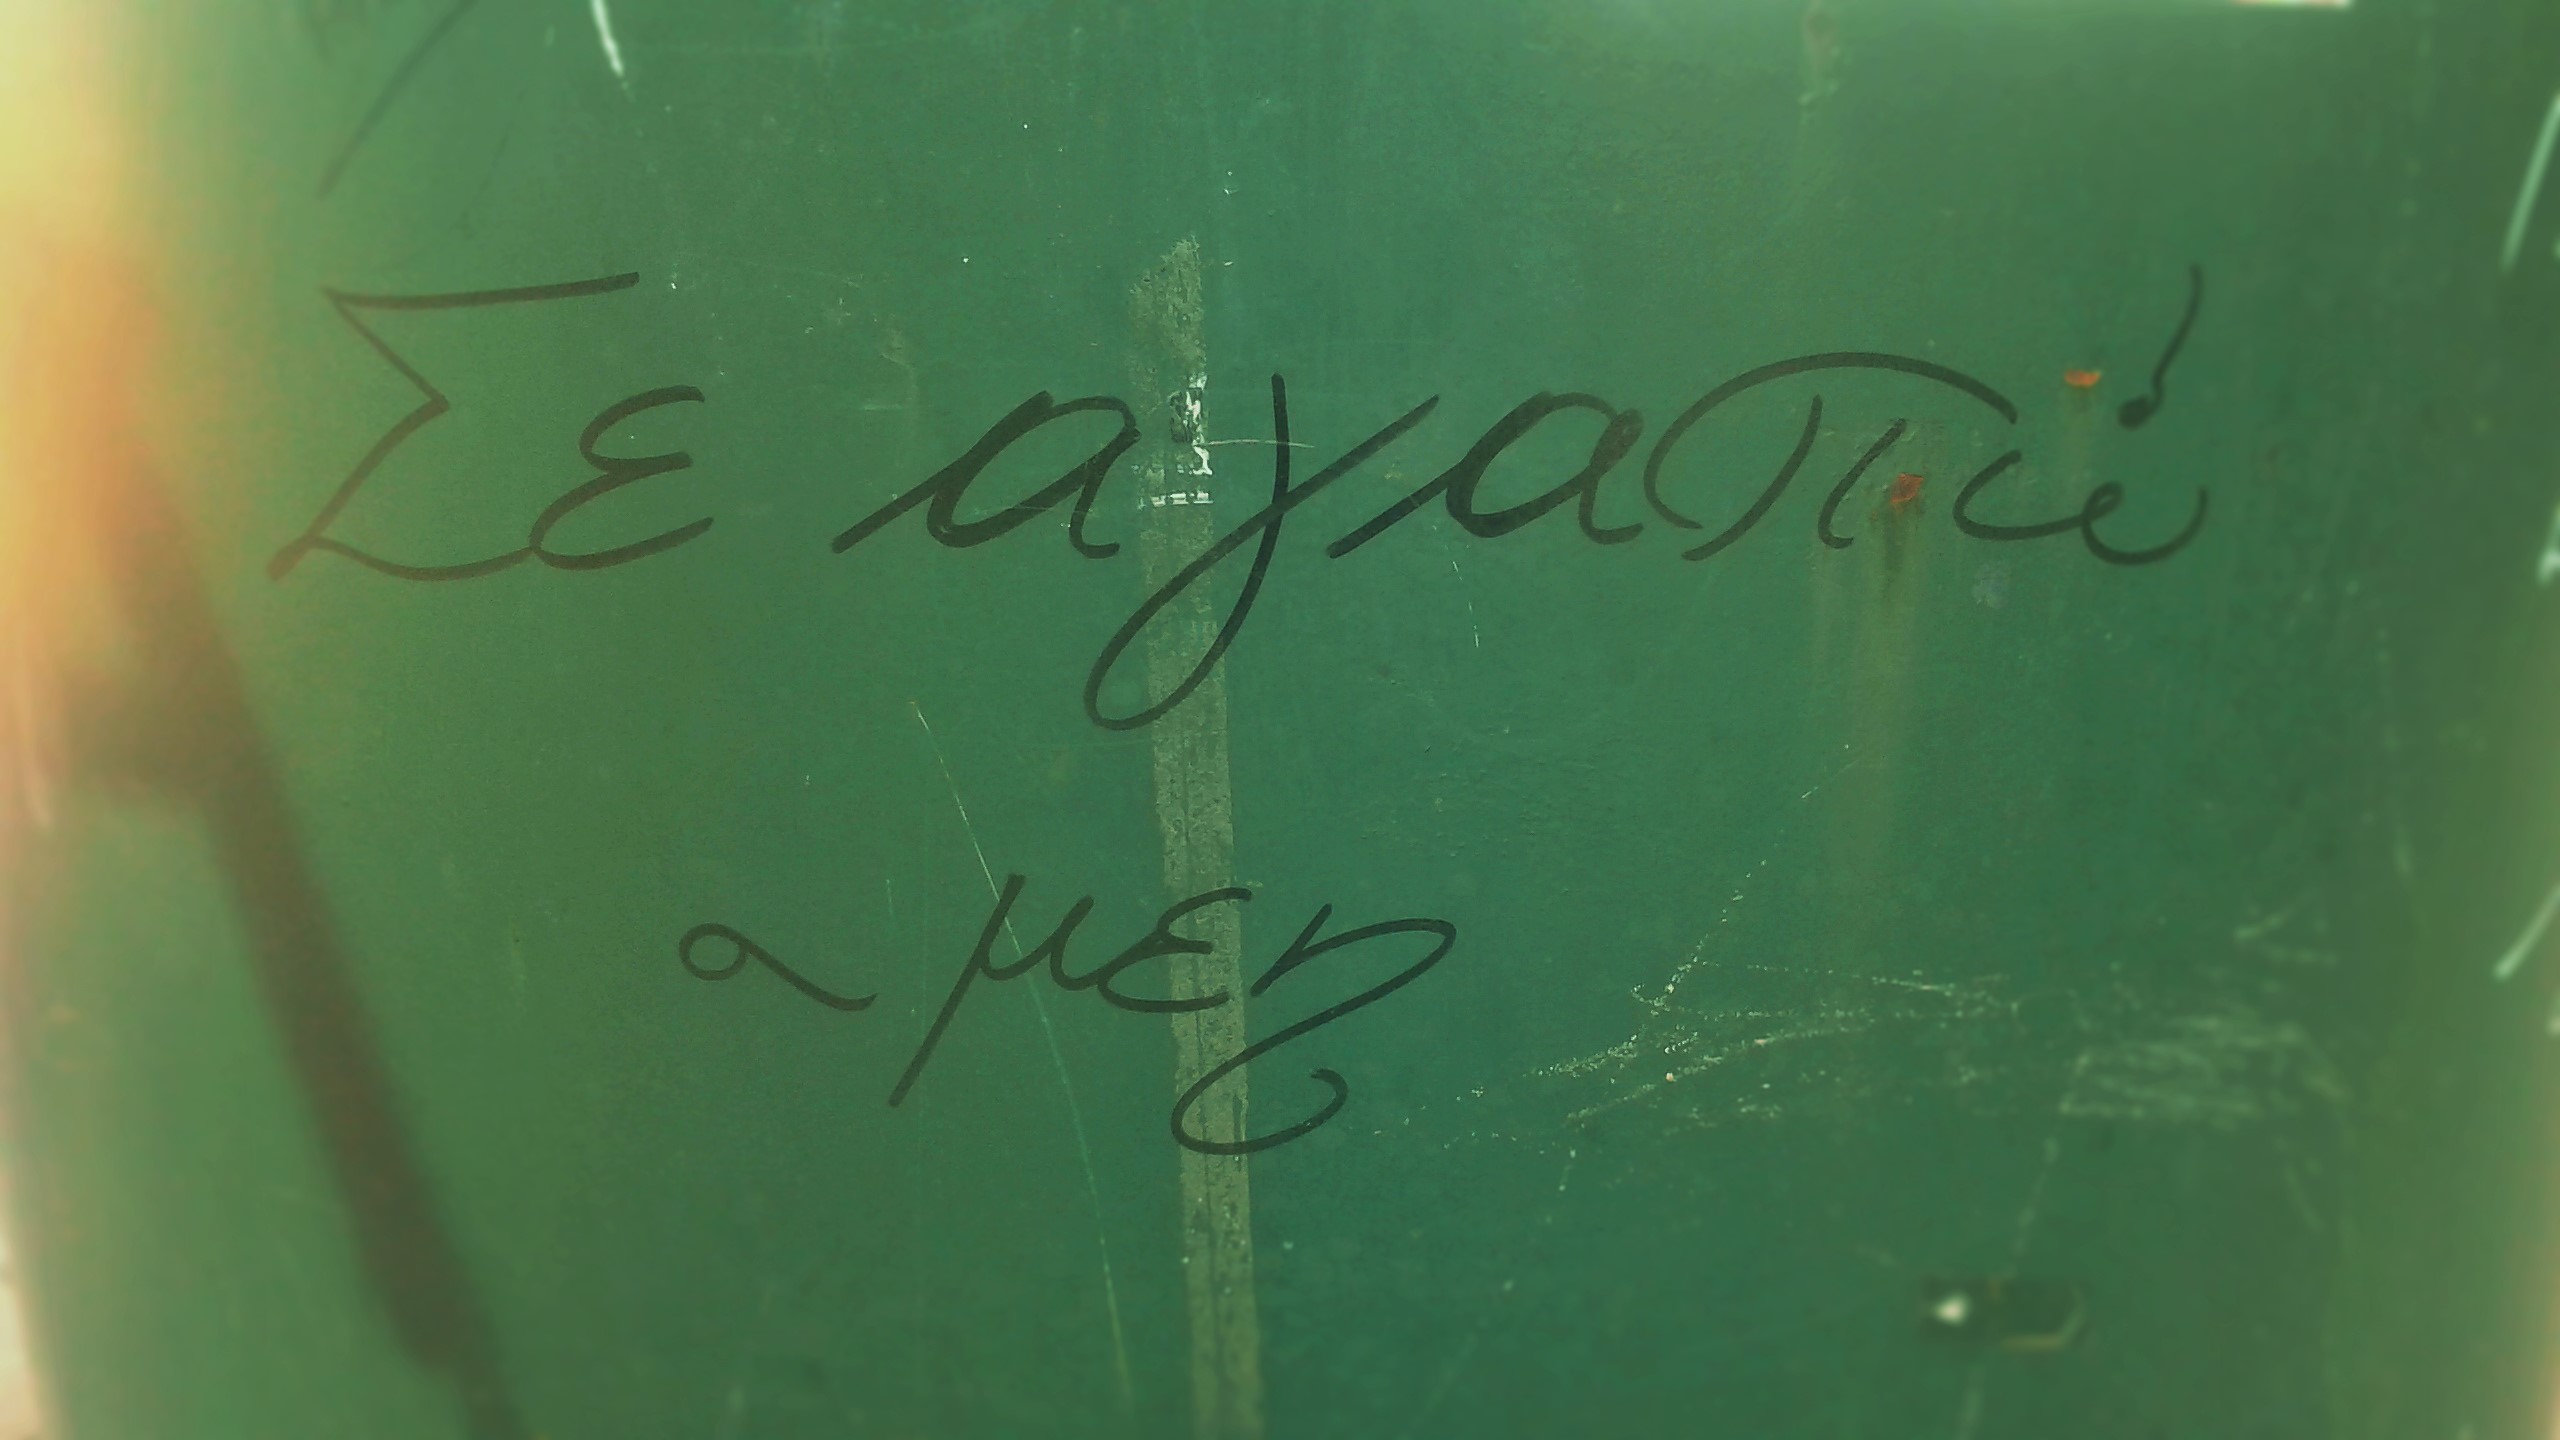 Σε αγαπώ
~ μεη